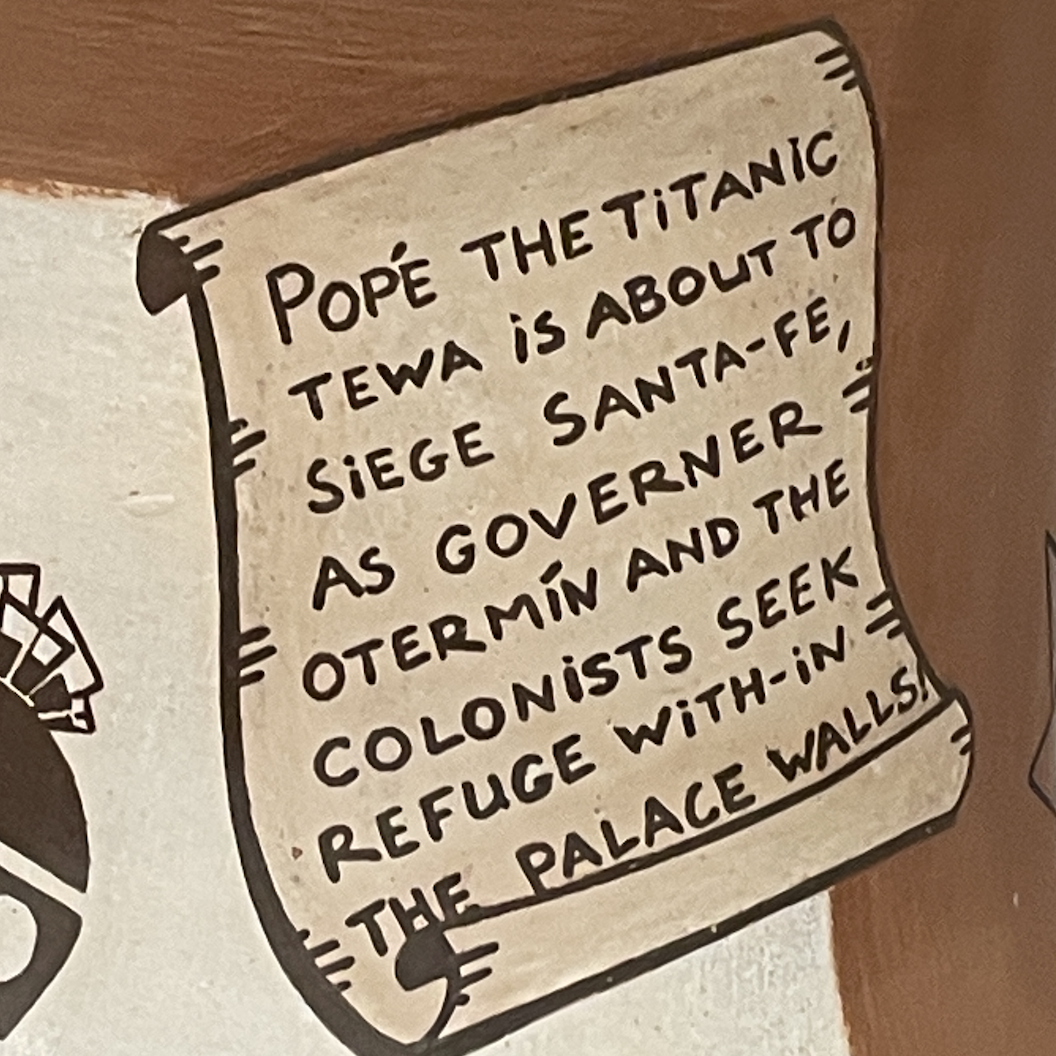 POPÉ THE TiTANiC
TEWA iS ABOUT TO
SiEGE SANTA-FE,
AS GOVERNER
OTERMÍN AND THE
COLONiSTS SEEK
REFUGE WiTH-iN
THE PALACE WALLS!